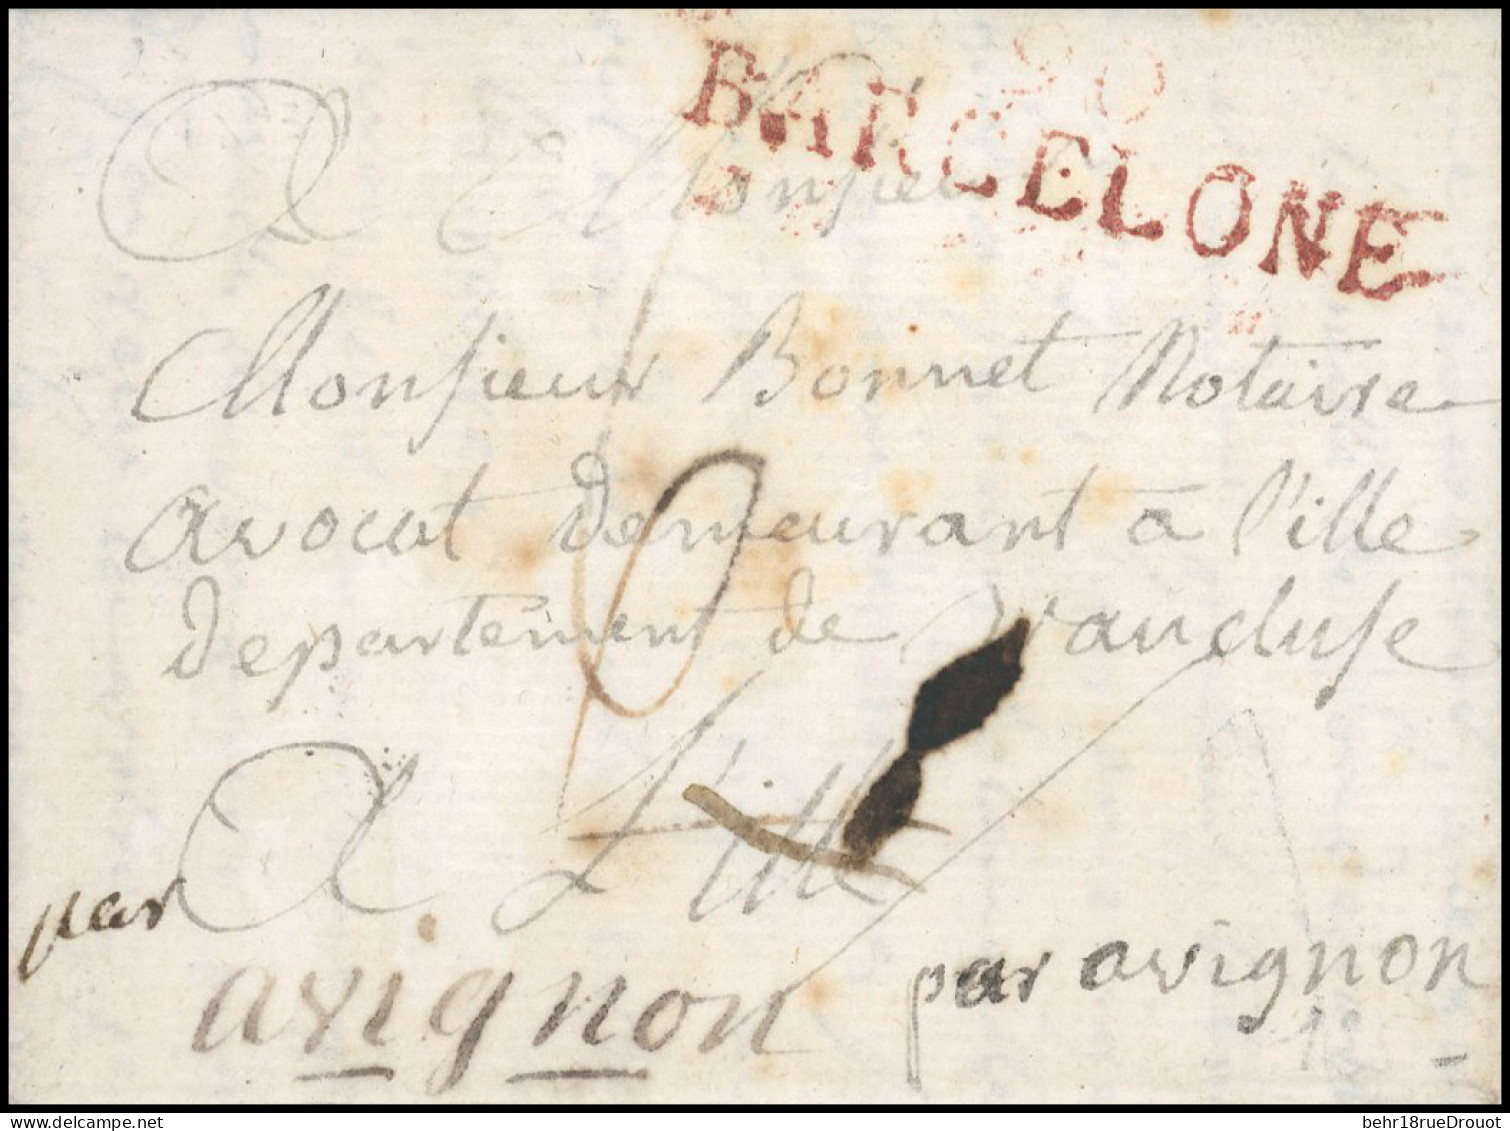 90
BARCELONE
A Monsieur
Monsieur Bonnet Notaire
avocat demeurant a l'ille
departement de vaucluse
A l'ille
par
avignon
par avignon
delcampe.net
behr18rueDrouot